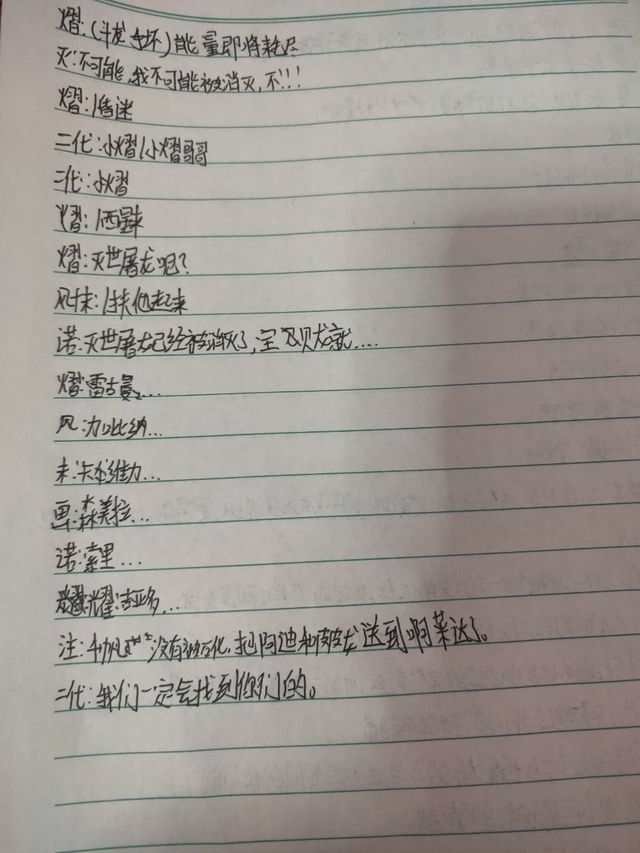 熠:(斗龙手环)能量即将耗尽
灭:不可能,我不可能被消灭,不!!!
熠:/昏迷
二代:小熠/小熠哥哥
二代:小熠
熠:/醒来
熠:灭世屠龙呢?
风末:/扶他起来
诺:灭世屠龙已经被消灭了,宝贝龙就....
熠:雷古曼...
风:加比纳...
末:卡布维力...
画:森美拉...
诺:索里...
耀:吉亚多...
注:没有被石化,把阿迪和 龙送到啊莱达了。
二代:我们一定会找到你们的。